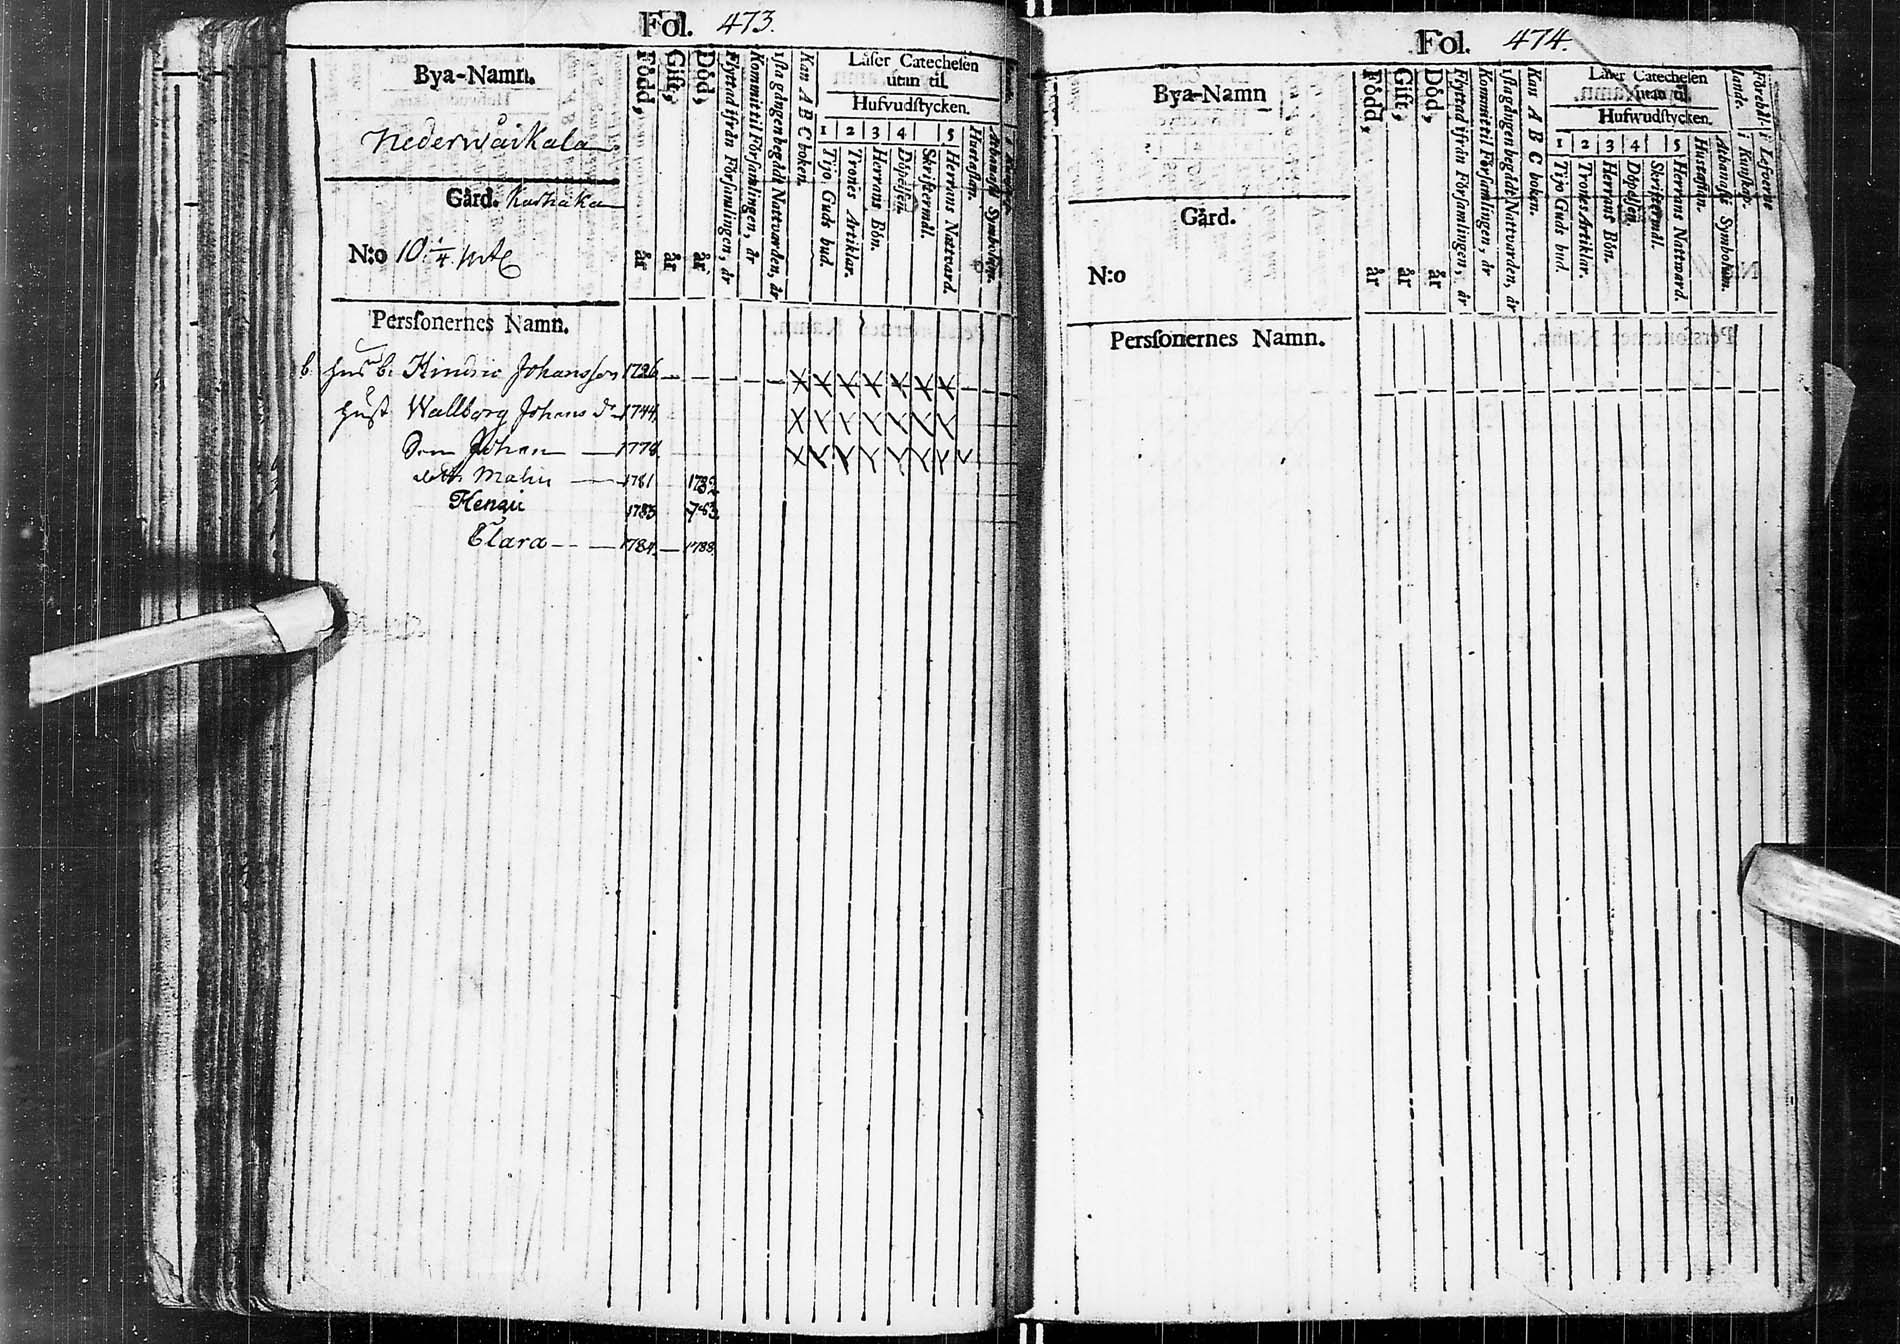 Fol. 473.
Bya-Namn.
Nederwäikala
Gård.
N:o 10. 1/4. mtl
Född, år
Gift, år
Död, år
Flyttad ifrån Församlingen, år
Kommit til Församlingen, år
1sta gången begådt Nattvarden, år
Kan A B C boken.
Läser Catechesen
utan til.
Hufvudstycken.
1 2 3 4 5
Tijo Guds bud.
Trones Artiklar.
Herrans Bön.
Döpelsen.
Skriftermål.
Herrans Nattvard.
Hustaflan.
Athanasii Symbolum.
Personernes Namn.
b. husb. Hindric Johansson 1726
hust Wallborg Johans dr 1744
Son Johan 1778
dottr Malin 1781 1782
Henric 1783 783
Clara 1784 1788
Fol. 474.
Bya-Namn
Gård.
N:o
Född, år
Gift, år
Död, år
Flyttad ifrån Församlingen, år
Kommit til Församlingen, år
1sta gången begådt Nattvarden, år
Kan A B C boken.
Läser Catechesen
utan til.
Hufwudstycken.
1 2 3 4 5
Tijo Guds bud.
Trones Artiklar.
Herrans Bön.
Döpelsen.
Skriftermål.
Herrans Nattward.
Hustaflan.
Athanasii Symbolum.
Personernes Namn.